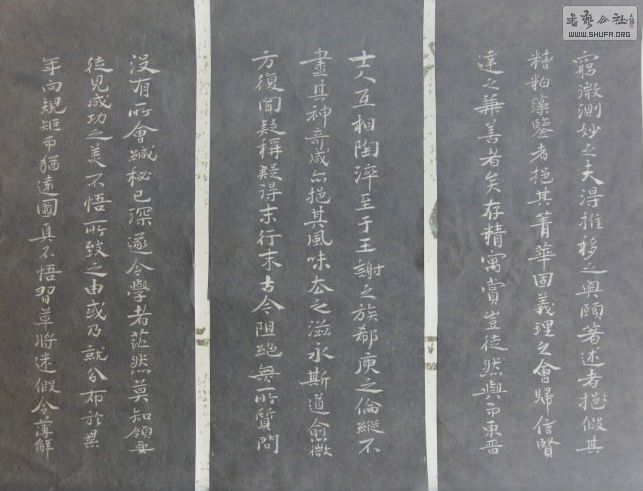 書藝公社
WWW.SHUFA.ORG
窮微測妙之夫得推移之奧賾著述者挹假其
糟粕藻鑒者挹其菁華固義理之會歸信賢
達之兼善者矣存精寓賞豈徒然與而東晉
士人互相陶淬至于王謝之族郗庾之倫縱不
盡其神奇咸亦挹其風味去之滋永斯道愈微
方復聞疑稱疑得末行末古今阻絕無所質問
設有所會緘秘已深遂令學者茫然莫知領要
徒見成功之美不悟所致之由或乃就分布於累
年向規矩而猶遠圖真不悟習草將迷假令薄解